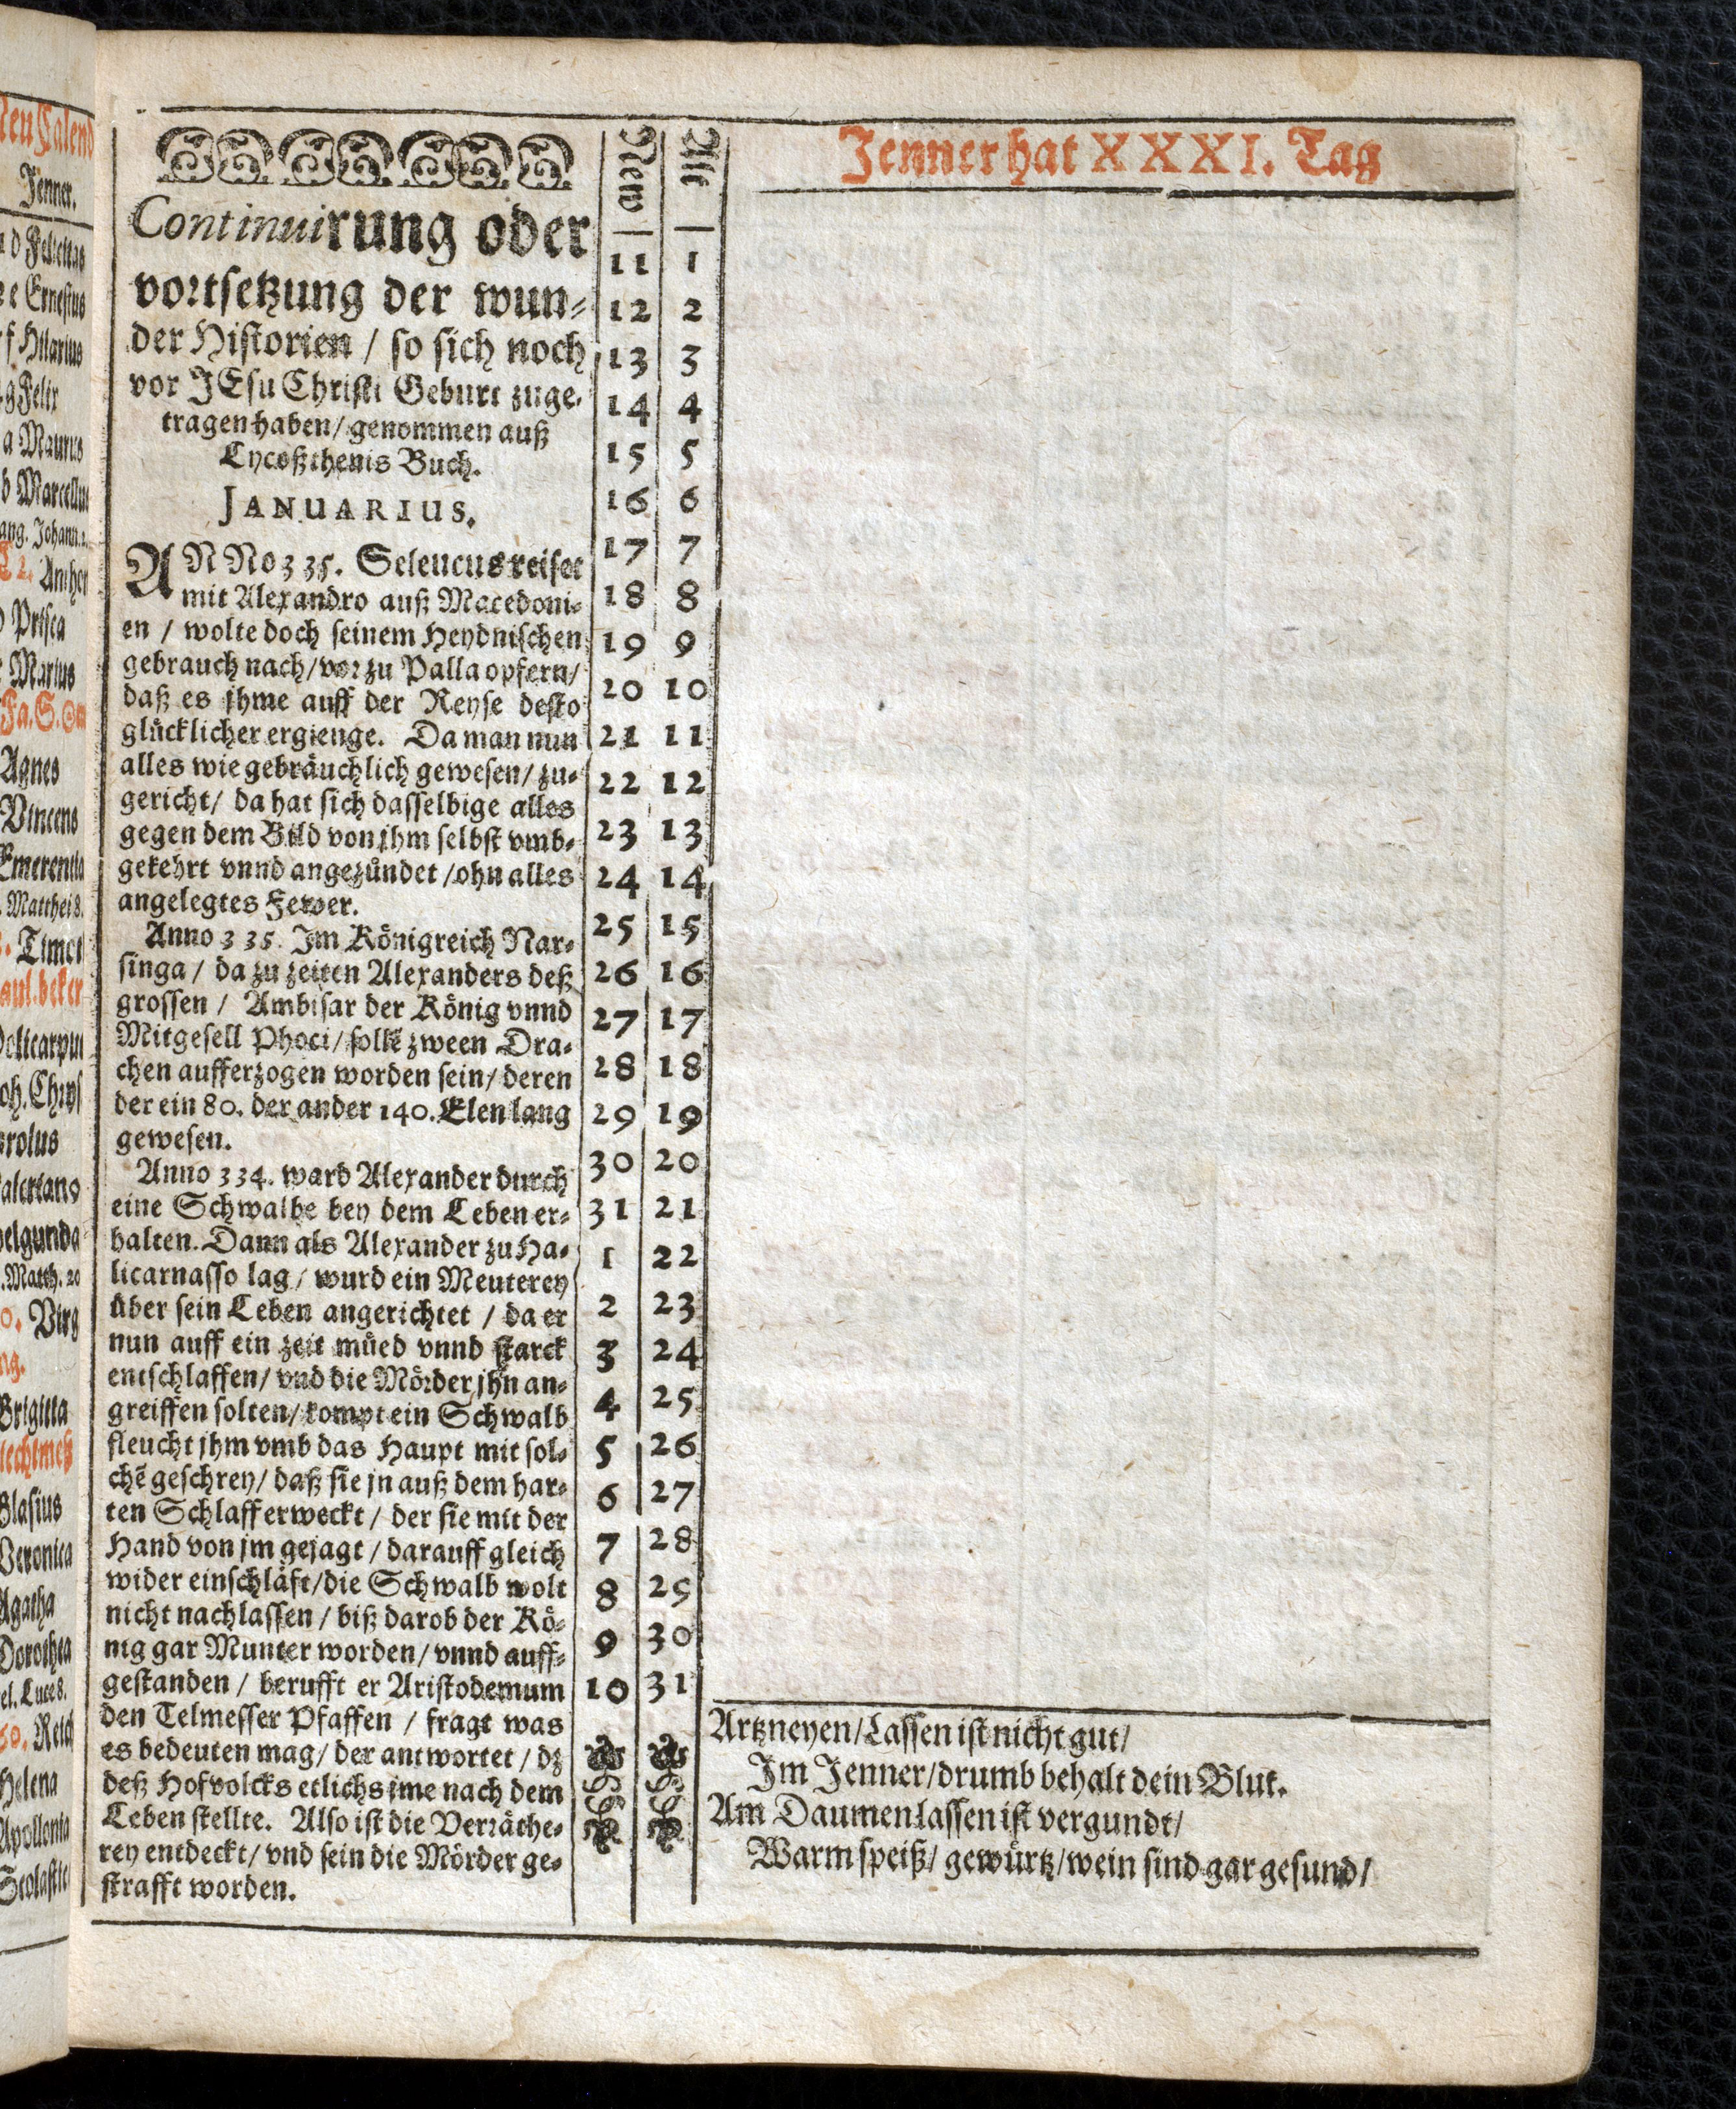 Neu Calend
Jenner.
Felicitas
e Ernestus
f Hilarius
g Felix
a Maurus
b Marcellus
ang. Johann. 2.
Prisca
Marius
Fa. S.
Agnes
Vincens
Emerentia
Matthei 8.
Timot
Paul. beker
Policarpus
Joh. Chrys
Carolus
Matth. 20
Virg
Brigitta
Liechtmeß
Blasius
Veronica
Agatha
Dorothea
el. Luce 8.
Helena
Apollonia
Scolastic
Continuirung oder
vortsetzung der wun-
der Historien / so sich noch
vor JEsu Christi Geburt zuge-
tragen haben / genommen auß
Lycoßthenis Buch.
JANUARIUS.
ANNo 335. Seleucus reiset
mit Alexandro auß Macedoni-
en / wolte doch seinem Heydnischen
gebrauch nach / vor zu Palla opfern /
daß es jhme auff der Reyse desto
glücklicher ergienge. Da man nun
alles wie gebräuchlich gewesen / zu-
gericht / da hat sich dasselbige alles
gegen dem Bild von jhm selbst vmb-
gekehrt vnnd angezündet / ohn alles
angelegtes Fewer.
Anno 335. Im Königreich Nar-
singa / da zu zeiten Alexanders deß
grossen / Ambisar der König vnnd
Mitgesell Phoci / sollẽ zween Dra-
chen aufferzogen worden sein / deren
der ein 80. der ander 140. Elen lang
gewesen.
Anno 334. ward Alexander durch
eine Schwalbe bey dem Leben er-
halten. Dann als Alexander zu Ha-
licarnasso lag / wurd ein Meuterey
über sein Leben angerichtet / da er
nun auff ein zeit müed vnnd starck
entschlaffen / vnd die Mörder jhn an-
greiffen solten / kompt ein Schwalb
fleucht jhm vmb das Haupt mit sol-
chẽ geschrey / daß sie jn auß dem har-
ten Schlaff erweckt / der sie mit der
Hand von jm gejagt / darauff gleich
wider einschläft / die Schwalb wolt
nicht nachlassen / biß darob der Kö-
nig gar Munter worden / vnnd auff-
gestanden / berufft er Aristodemum
den Telmesser Pfaffen / fragt was
es bedeuten mag / der antwortet / dz
deß Hofvolcks etlichs jme nach dem
Leben stellte. Also ist die Verräthe-
rey entdeckt / vnd sein die Mörder ge-
strafft worden.
New Alt
11 1
12 2
13 3
14 4
15 5
16 6
17 7
18 8
19 9
20 10
21 11
22 12
23 13
24 14
25 15
26 16
27 17
28 18
29 19
30 20
31 21
1 22
2 23
3 24
4 25
5 26
6 27
7 28
8 29
9 30
10 31
Jenner hat XXXI. Tag
Artzneyen / Lassen ist nicht gut /
Im Jenner / drumb behalt dein Blut.
Am Daumen lassen ist vergundt /
Warm speiß / gewürtz / wein sind gar gesund /